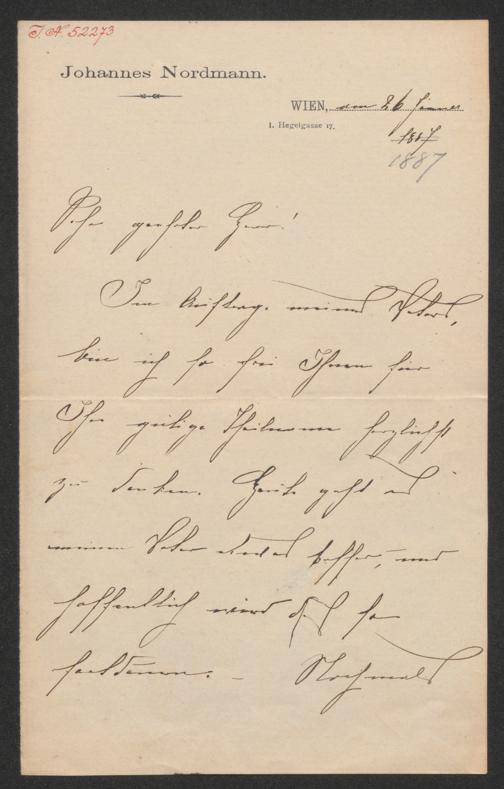 I.N. 52273
Johannes Nordmann.
WIEN, am 26 Jänner
I. Hegelgasse 17.
1887
1887
Sehr geehrter Herr!
Im Auftrage meines Vaters,
bin ich so frei Ihnen für
Ihre gütige Theilname herzlichst
zu danken. Heute geht es
meinem Vater etwas besser, und
hoffentlich wird dieß so
fortdauern. – Nochmals